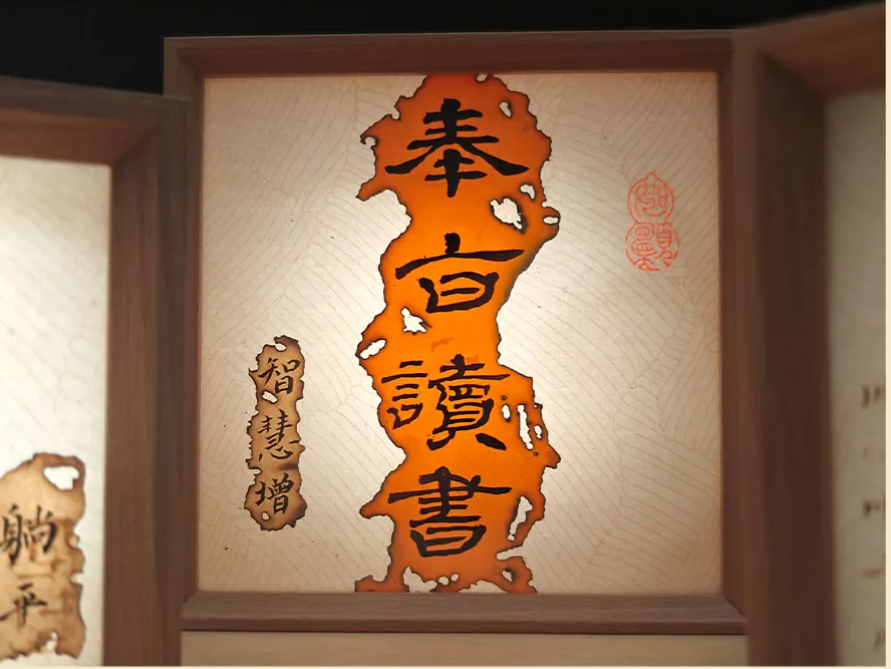 奉旨讀書
智慧增
躺平